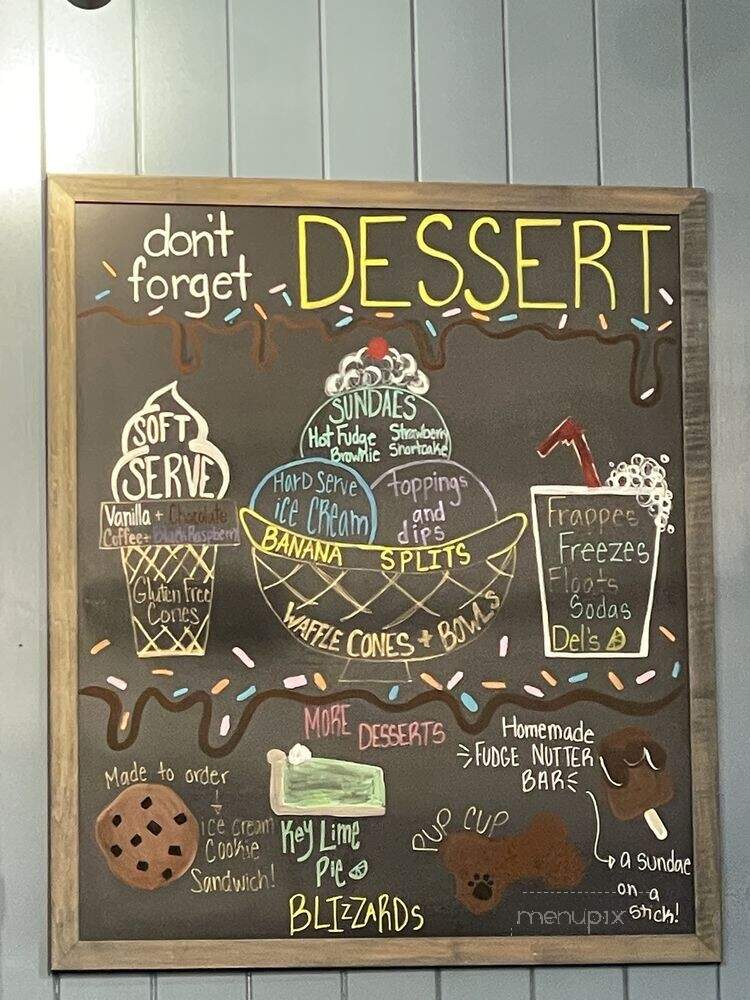 don't
forget
DESSERT
SOFT
SERVE
Vanilla + Chocolate
Coffee + Black Raspberry
Gluten Free
Cones
SUNDAES
Hot Fudge Strawberry
Brownie Shortcake
Hard Serve
ice Cream
toppings
and
dips
BANANA SPLITS
WAFFLE CONES + BOWLS
Frappes
Freezes
Floats
Sodas
Del's
MORE DESSERTS
Made to order
ice cream
Cookie
Sandwich!
Key Lime
Pie
BLIZZARDS
PUP CUP
Homemade
FUDGE NUTTER
BAR
a sundae
on a
stick!
menupix